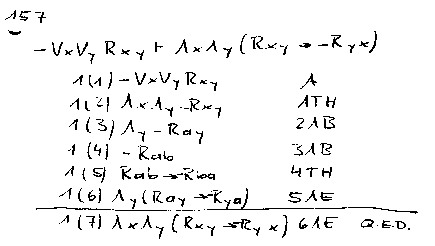 157
-VxVy Rxy ⊢ ΛxΛy(Rxy → -Ryx)
1(1) -VxVy Rxy A
1(2) ΛxΛy -Rxy 1TH
1(3) Λy -Ray 2ΛB
1(4) -Rab 3ΛB
1(5) Rab → -Rba 4TH
1(6) Λy(Ray → -Rya) 5ΛE
1(7) ΛxΛy(Rxy → -Ryx) 6ΛE Q.E.D.